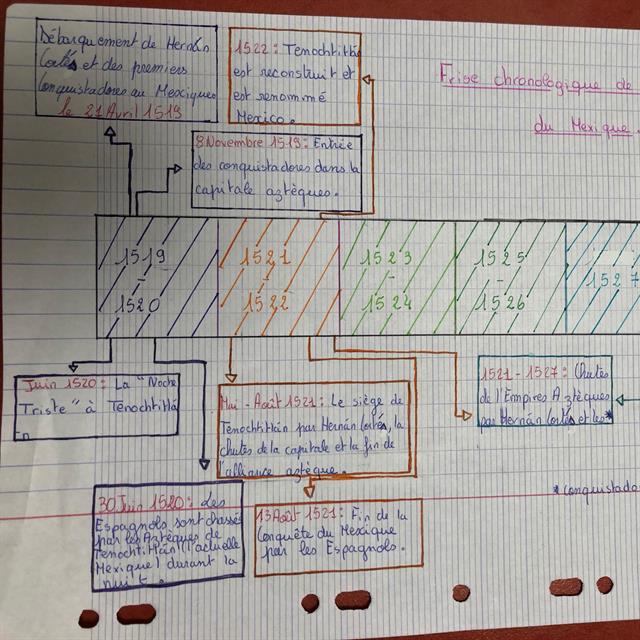 Débarquement de Hernán
Cortés et des premiers
Conquistadores au Mexique
le 21 Avril 1519
1522 : Tenochtitlán
est reconstruit et
est renommé
Mexico.
Frise chronologique de
du Mexique
8 Novembre 1519 : Entrée
des conquistadores dans la
capitale aztèques.
1519
-
1520
1521
-
1522
1523
-
1524
1525
-
1526
1527
Juin 1520 : La "Noche
Triste" à Tenochtitlá
n
Mai - Août 1521 : Le siège de
Tenochtitlán par Hernán Cortés, la
chutes de la capitale et la fin de
l'alliance aztèque.
1521 - 1527 : Chutes
de l'Empires Aztèques
par Hernán Cortés et les*
*conquistado
30 Juin 1520 : des
Espagnols sont chassés
par les Aztèques de
Tenochtitlán (l'actuelle
Mexique) durant la
nuit.
13 Août 1521 : Fin de la
Conquête du Mexique
par les Espagnols.